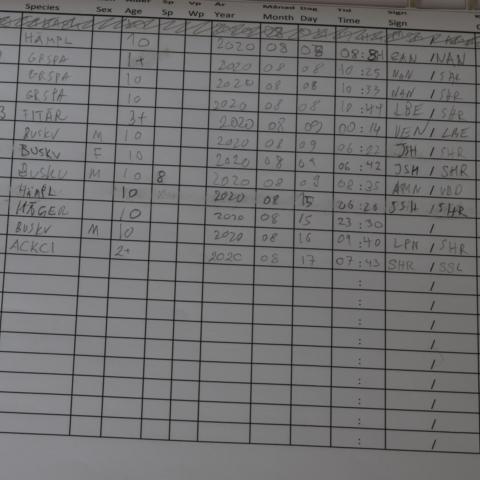 Species Sex Age Sp Vp År Månad Dag Tid Sign
Sp Wp Year Month Day Time Sign
HÄMPL 10 2020 08 08 08: /NAN
GRSPA 1+ 2020 08 08 10:25 NAN /SAL
GRSPA 10 2020 08 08 10:33 NAN /SHR
GRSPA 10 2020 08 08 10:44 LBE/SHR
3 TITÄR 3+ 2020 08 09 00:14 VEN/LBE
BUSKV M 10 2020 08 09 06:22 JSH /SHR
BUSKV F 10 2020 08 09 06:42 JSH /SHR
BUSKV M 10 8 2020 08 09 08:35 /VBD
HÄMPL 10 2020 08 15 06:26 JSH /SHR
HÄGER 10 2020 08 15 23:30 /
BUSKV M 10 2020 08 16 09:40 LPN /SHR
ACKCI 2+ 2020 08 17 07:43 SHR /SSL
: /
: /
: /
: /
: /
: /
: /
: /
: /